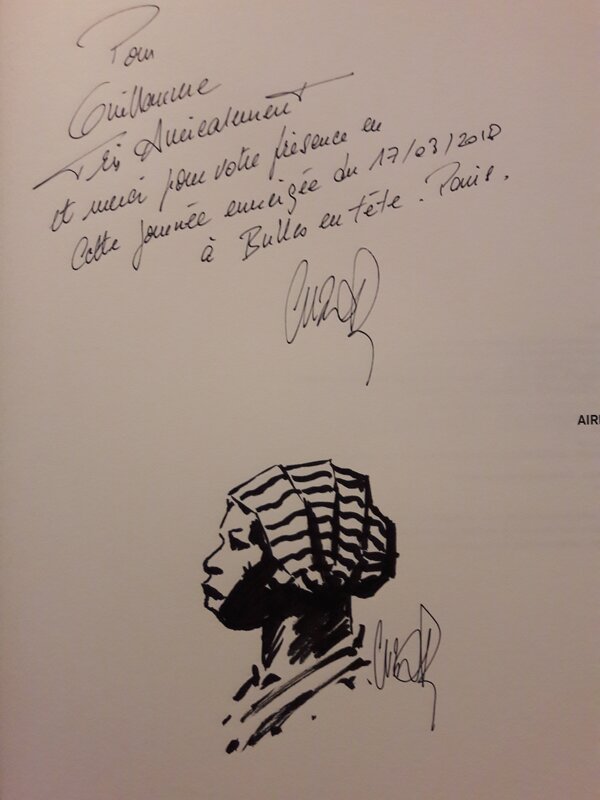 Pour
Guillaume
Très Amicalement
et merci pour votre présence en
Cette journée enneigée du 17/03/2018
à Bulles en tête. Paris.
AIR